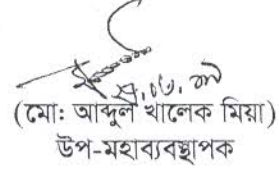 (মো: আব্দুল খালেক মিয়া)
উপ-মহাব্যবস্থাপক